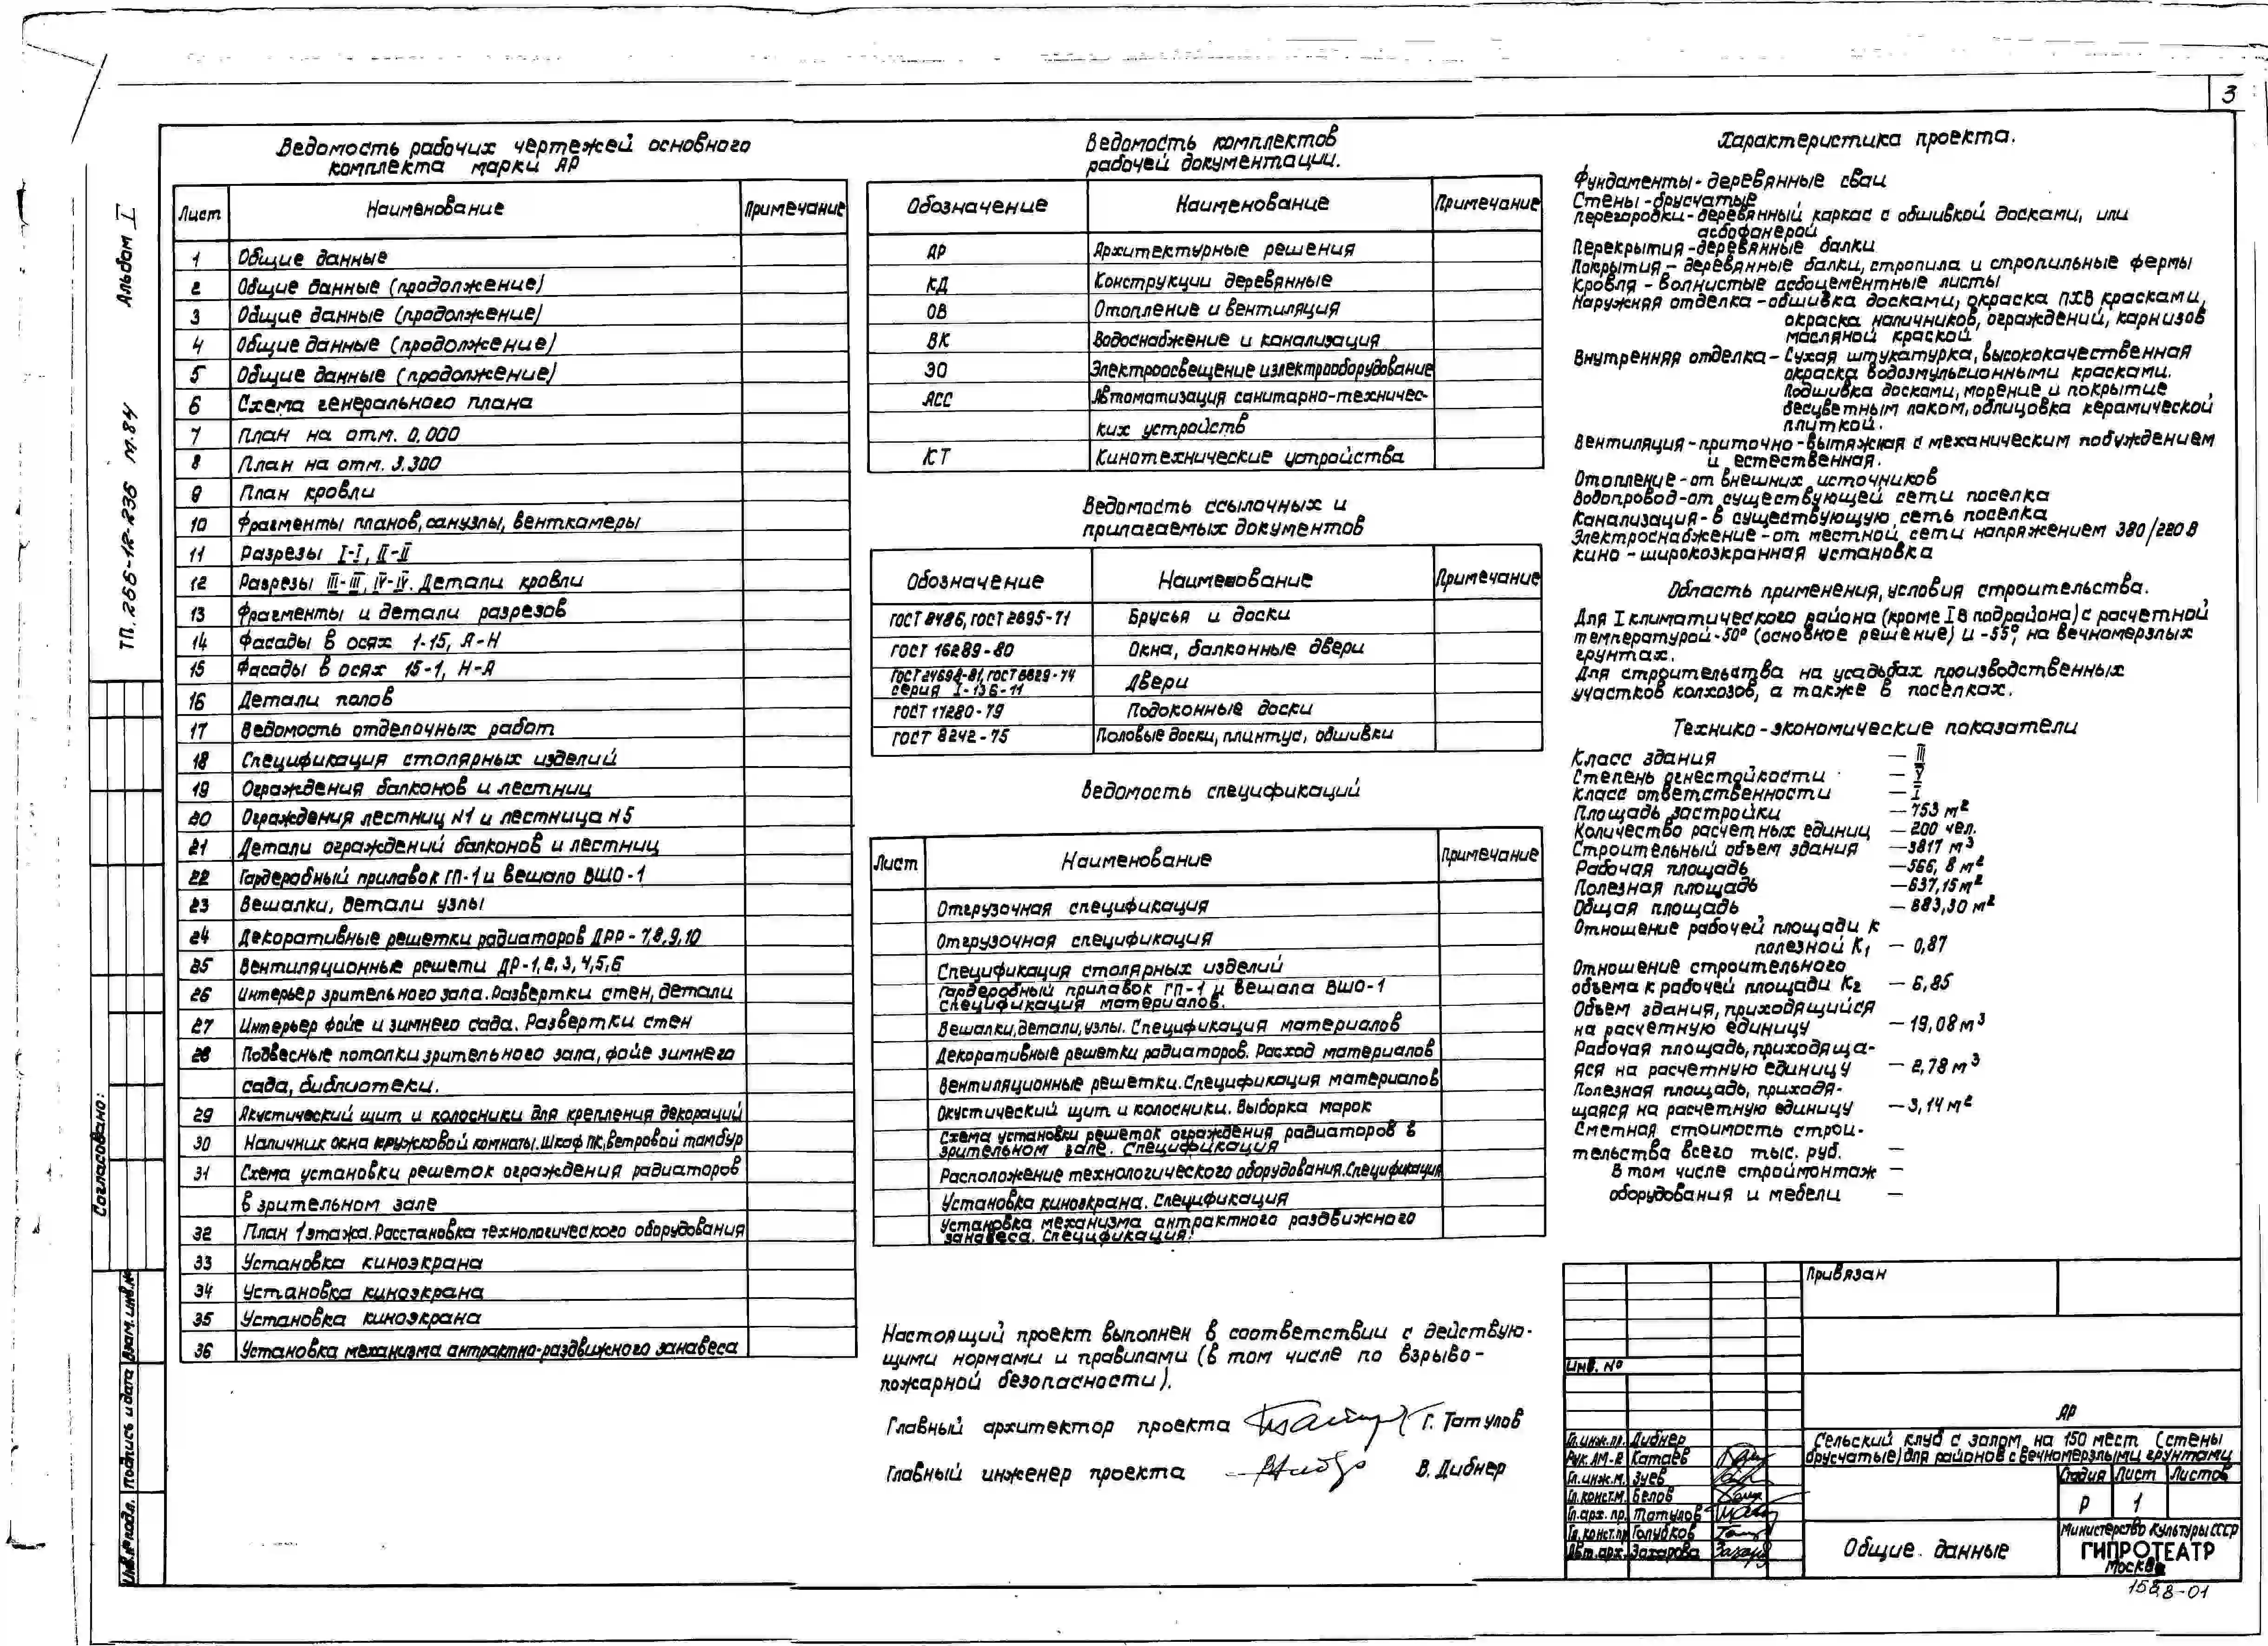 3
Альбом I
ТП. 266-12-236 м.84
Согласовано:
Взам. инв.№
Подпись и дата
Инв.№ подл.
Ведомость рабочих чертежей основного
комплекта марки АР
Лист Наименование Примечание
1 Общие данные
2 Общие данные (продолжение)
3 Общие данные (продолжение)
4 Общие данные (продолжение)
5 Общие данные (продолжение)
6 Схема генерального плана
7 План на отм. 0,000
8 План на отм. 3.300
9 План кровли
10 Фрагменты планов, санузлы, венткамеры
11 Разрезы I-I, II-II
12 Разрезы III-III, IV-IV. Детали кровли
13 Фрагменты и детали разрезов
14 Фасады в осях 1-15, А-Н
15 Фасады в осях 15-1, Н-А
16 Детали полов
17 Ведомость отделочных работ
18 Спецификация столярных изделий
19 Ограждения балконов и лестниц
20 Ограждения лестниц N1 и лестница N5
21 Детали ограждений балконов и лестниц
22 Гардеробный прилавок ГП-1 и вешало ВШО-1
23 Вешалки, детали узлы
24 Декоративные решетки радиаторов ДРР-7,8,9,10
25 Вентиляционные решети ДР-1,2,3,4,5,6
26 Интерьер зрительного зала. Развертки стен, детали
27 Интерьер фойе и зимнего сада. Развертки стен
28 Подвесные потолки зрительного зала, фойе зимнего
сада, библиотеки.
29 Акустический щит и колосники для крепления декораций
30 Наличник окна кружковой комнаты. Шкаф ПК, ветровой тамбур
31 Схема установки решеток ограждения радиаторов
в зрительном зале
32 План 1 этажа. Расстановка технологического оборудования
33 Установка киноэкрана
34 Установка киноэкрана
35 Установка киноэкрана
36 Установка механизма антрактно-раздвижного занавеса
Ведомость комплектов
рабочей документации.
Обозначение Наименование Примечание
АР Архитектурные решения
КД Конструкции деревянные
ОВ Отопление и вентиляция
ВК Водоснабжение и канализация
ЭО Электроосвещение и электрооборудование
АСС Автоматизация санитарно-техничес-
ких устройств
КТ Кинотехнические устройства
Ведомость ссылочных и
прилагаемых документов
Обозначение Наименование Примечание
ГОСТ 8486, ГОСТ 2695-71 Брусья и доски
ГОСТ 16289-80 Окна, балконные двери
ГОСТ 24698-81, ГОСТ 6629-74
серия I-136-11 Двери
ГОСТ 17280-79 Подоконные доски
ГОСТ 8242-75 Половые доски, плинтус, обшивки
Ведомость спецификаций
Лист Наименование Примечание
Отгрузочная спецификация
Отгрузочная спецификация
Спецификация столярных изделий
Гардеробный прилавок ГП-1 и вешала ВШО-1
спецификация материалов.
Вешалки, детали, узлы. Спецификация материалов
Декоративные решетки радиаторов. Расход материалов
Вентиляционные решетки. Спецификация материалов
Окустический щит и колосники. Выборка марок
Схема установки решеток ограждения радиаторов в
зрительном зале. Спецификация
Расположение технологического оборудования. Спецификация
Установка киноэкрана. Спецификация
Установка механизма антрактного раздвижного
занавеса. Спецификация.
Настоящий проект выполнен в соответствии с действую-
щими нормами и правилами (в том числе по взрыво-
пожарной безопасности).
Главный архитектор проекта Г. Татулов
Главный инженер проекта В. Дибнер
Характеристика проекта.
Фундаменты - деревянные сваи
Стены - брусчатые
Перегородки - деревянный каркас с обшивкой досками, или
асбофанерой
Перекрытия - деревянные балки
Покрытия - деревянные балки, стропила и стропильные фермы
Кровля - волнистые асбоцементные листы
Наружняя отделка - обшивка досками, окраска ПХВ красками,
окраска наличников, ограждений, карнизов
масляной краской
Внутренняя отделка - Сухая штукатурка, высококачественная
окраска водоэмульсионными красками.
Подшивка досками, морение и покрытие
бесцветным лаком, облицовка керамической
плиткой.
Вентиляция - приточно-вытяжная с механическим побуждением
и естественная.
Отопление - от внешних источников
Водопровод - от существующей сети поселка
Канализация - в существующую сеть поселка
Электроснабжение - от местной сети напряжением 380/220 В
Кино - широкоэкранная установка
Область применения, условия строительства.
Для I климатического района (кроме IВ подрайона) с расчетной
температурой -50° (основное решение) и -55°, на вечномерзлых
грунтах.
Для строительства на усадьбах производственных
участков колхозов, а также в поселках.
Технико-экономические показатели
Класс здания — III
Степень огнестойкости — V
Класс ответственности — I
Площадь застройки — 753 м²
Количество расчетных единиц — 200 чел.
Строительный объем здания — 3817 м³
Рабочая площадь — 566,8 м²
Полезная площадь — 637,15 м²
Общая площадь — 883,30 м²
Отношение рабочей площади к
полезной К1 — 0,87
Отношение строительного
объема к рабочей площади К2 — 6,85
Объем здания, приходящийся
на расчетную единицу — 19,08 м³
Рабочая площадь, приходяща-
яся на расчетную единицу — 2,78 м³
Полезная площадь, приходя-
щаяся на расчетную единицу — 3,14 м²
Сметная стоимость строи-
тельства всего тыс. руб. —
В том числе строймонтаж —
оборудования и мебели —
Привязан
Инв. №
АР
Сельский клуб с залом на 150 мест (стены
брусчатые) для районов с вечномерзлыми грунтами
Гл.инж.пр. Дибнер
Рук.АМ-2 Катаев
Гл.инж.м. Зуев
Гл.конст.м. Белов
Гл.арх.пр. Татулов
Гл.конст.пр Голубков
Авт.арх. Захарова
Стадия Лист Листов
Р 1
Общие данные
Министерство Культуры СССР
ГИПРОТЕАТР
Москва
1588-01